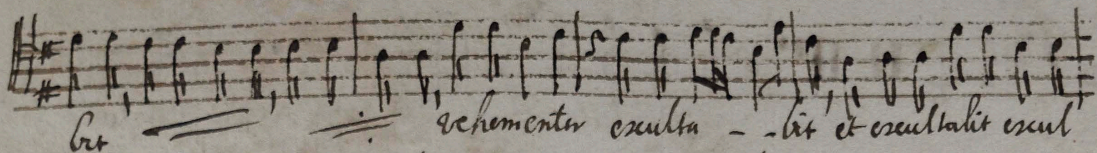 bit vehementer exulta - - bit et exultabit exul